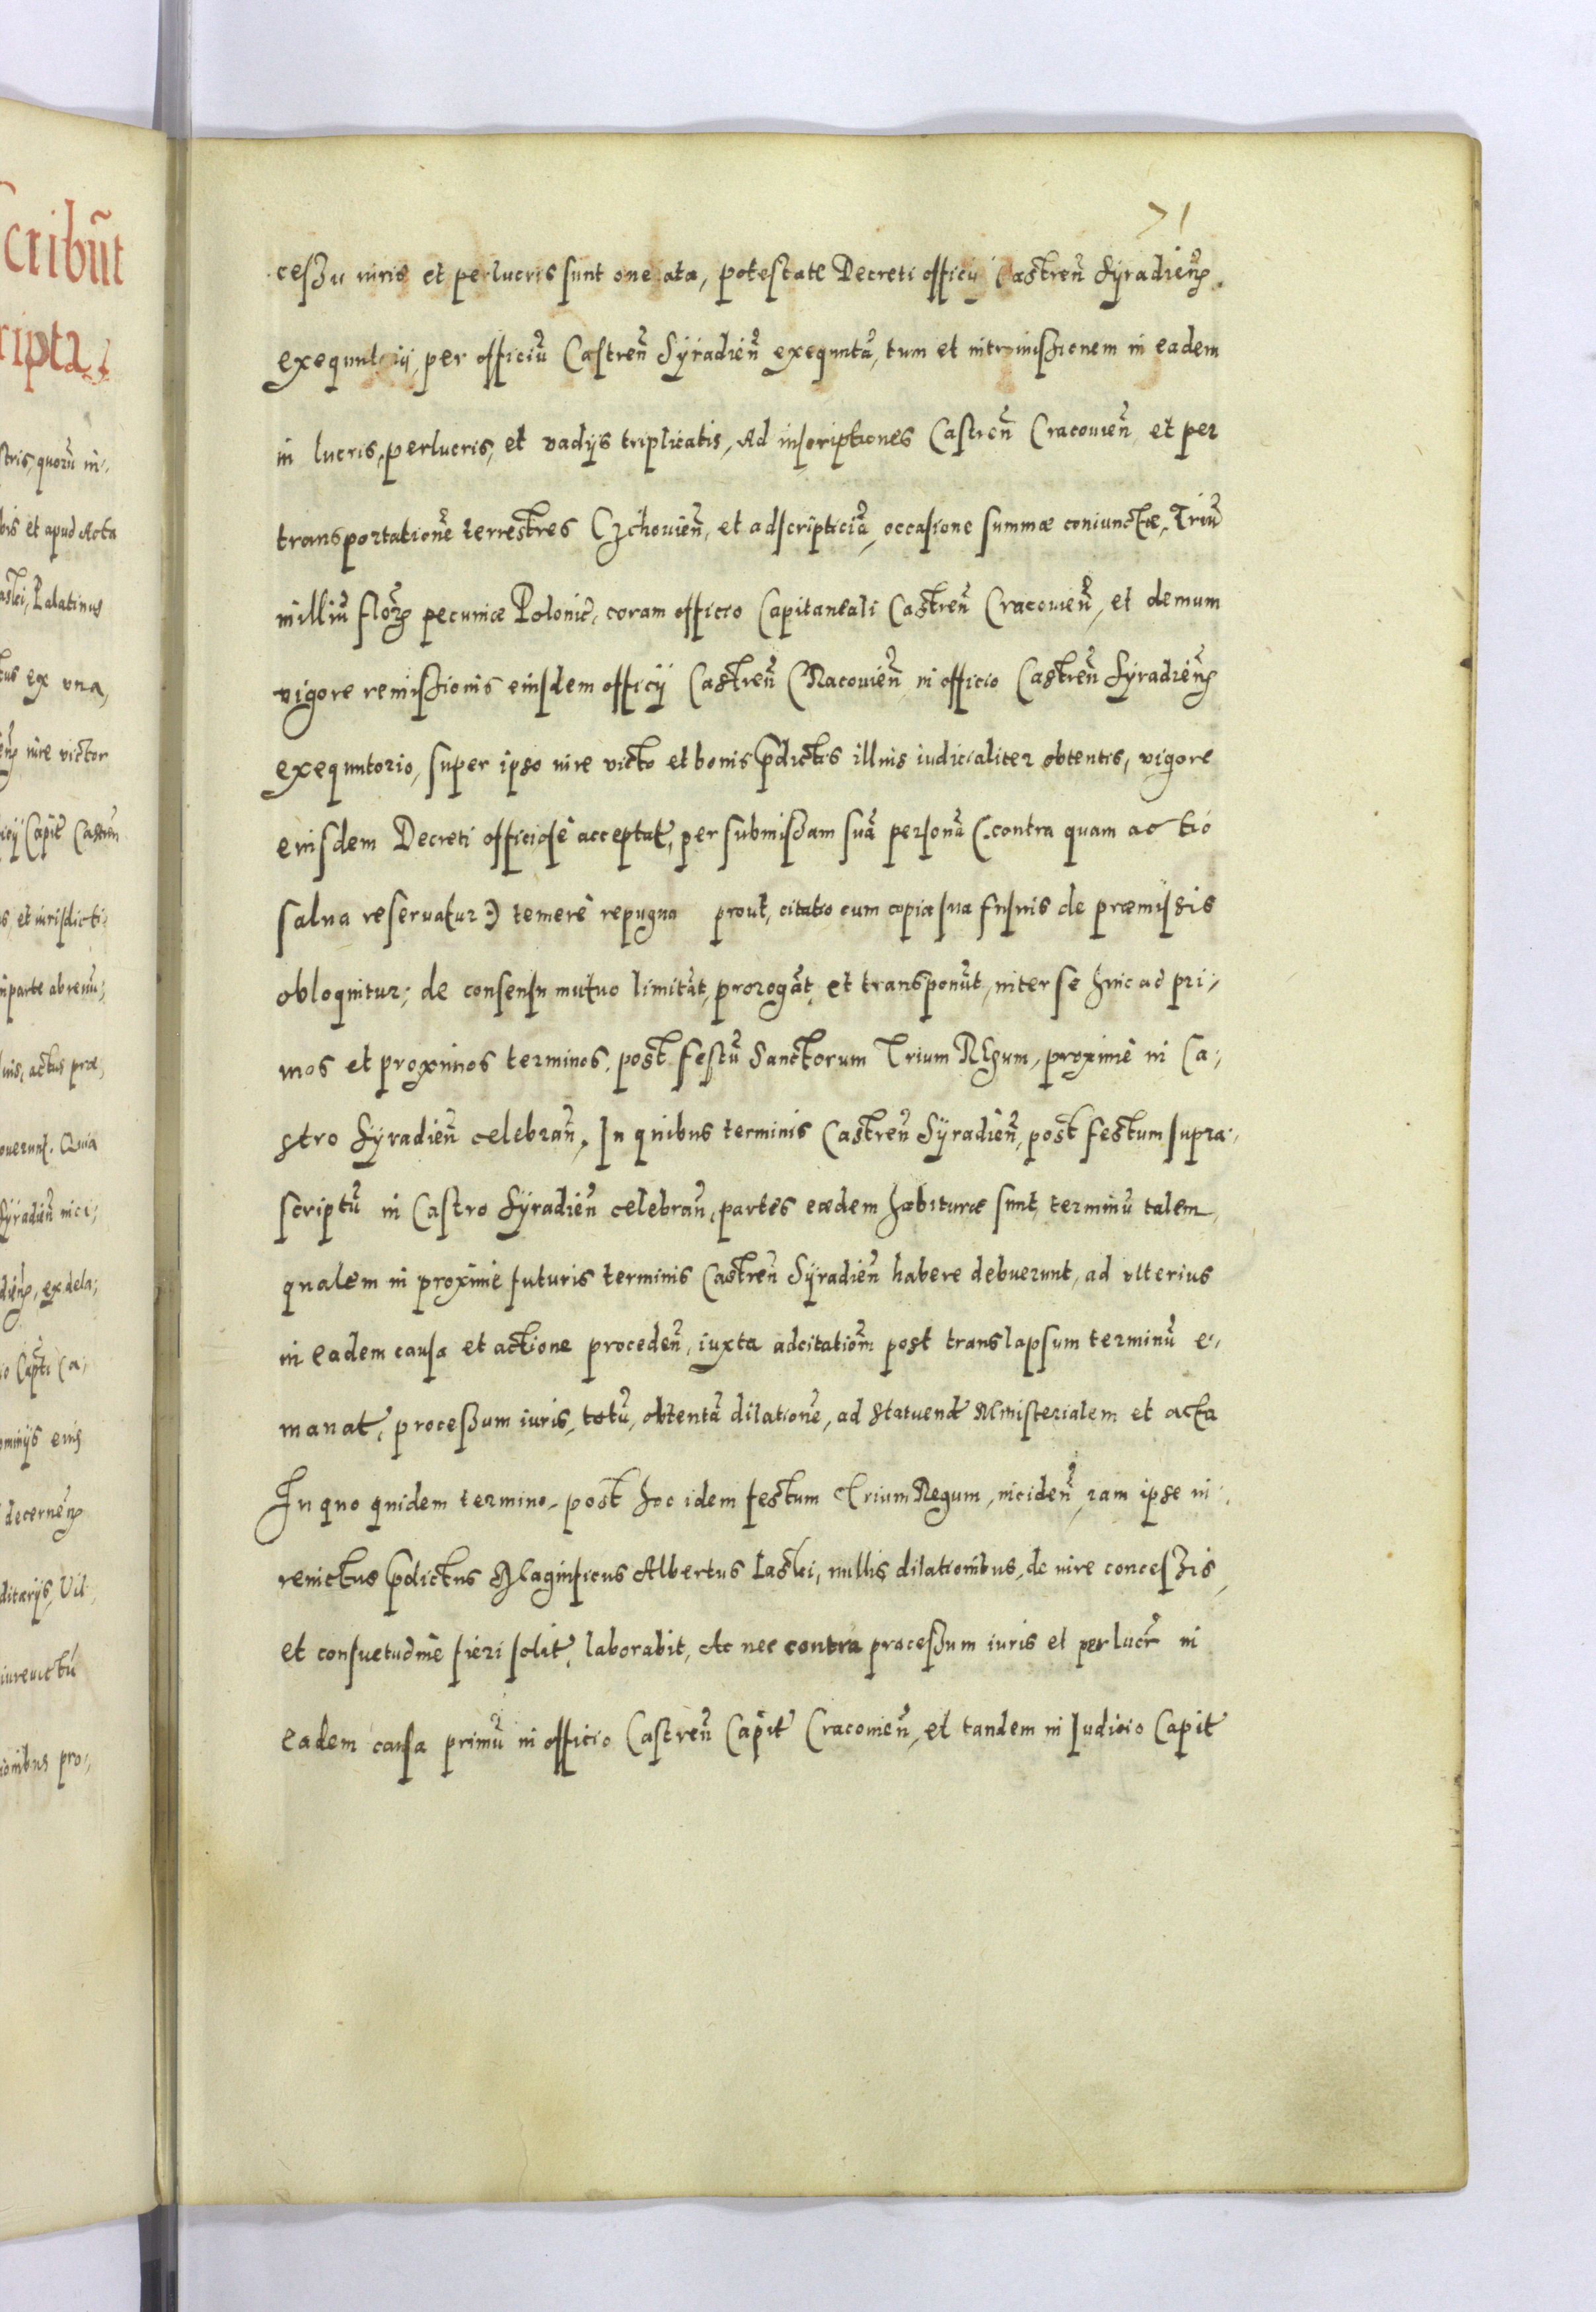 cribūt
ripta.
stris, quorū in-
bis et apud Acta
aski, Palatinus
tus ex vna,
enß iure victor
icij Capit Castren
s, et iurisdicti-
nparte abrenū,
uis, actus præ,
ouerunt. Quia
Syradien̄ inci,
diens, ex dela,
io Capti Ca,
ominijs eius
decernens
ditarijs, Vil,
iureuictū
ionibus pro,
71
ceßu iuris et perlucris sunt onerata, potestate Decreti officij Castren̄ Syradien̄ß.
exequutorij, per officiū Castren̄ Syradien̄ exequutā, tum et intromißionem in eadem
in lucris, perlucris, et vadijs triplicatis, Ad inscriptiones Castren̄ Cracouien̄ et per
transportationē terrestres Czchouien̄, et adscripticiā, occasione summæ coniunctæ, Triū
milliū florꝝ pecuniæ Polonic̄, coram officio Capitaneali Castren̄ Cracouien̄, et demum
vigore remißionis eiusdem officij Castren̄ CRacouien̄ in officio Castren̄ Syradien̄ß
exequutorio, super ipso iure victo et bonis p̄dictis illius iudicialiter obtentis, vigore
eiusdem Decreti officiosè acceptat̄, per submißam suā personā (:contra quam actio
salua reseruatur:) temerè repugna prout, citatio cum copia sua fusius de præmißis
obloquitur; de consensu mutuo limitāt, prorogāt, et transponūt, inter se hinc ad pri-
mos et proximos terminos, post festū Sanctorum Trium REgum, proximè in Ca-
stro Syradien̄ celebran̄. In quibus terminis Castren̄ Syradien̄, post festum supra-
scriptū in Castro Syradien̄ celebran̄, partes eædem habituræ sunt, terminū talem,
qualem in proximè futuris terminis Castren̄ Syradien̄ habere debuerunt, ad vlterius
in eadem causa et actione proceden̄, iuxta adcitationē post translapsum terminū e-
manat̄, proceßum iuris, totū, obtentā dilationē, ad statuend̄ Ministerialem et acta
In quo quidem termino, post hoc idem festum Trium Regum, inciden̄, iam ipse iu-
reuictus p̄dictus Magnificus Albertus Laski, nullis dilationibus, de iure conceßis,
et consuetudinē fieri solit̄, laborabit, Ac nec contra proceßum iuris et perlucr̄ in
eadem causa primū in officio Castren̄ Capit̄ Cracouien̄, et tandem in Iudicio Capit̄